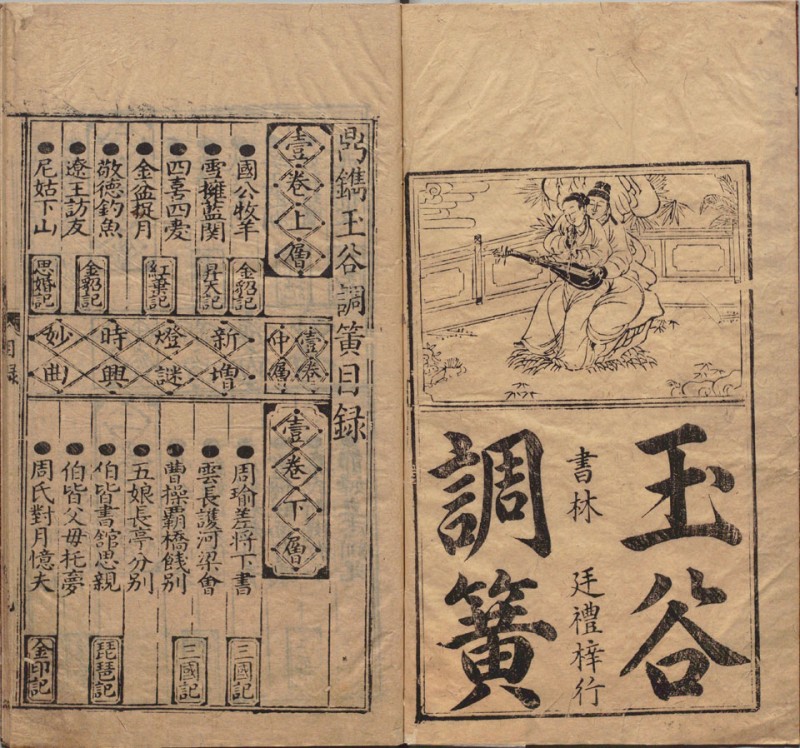 玉谷
書林 廷禮梓行
調簧
鼎鐫玉谷調簧目録
壹卷上層
國公牧羊 金貂記
雪擁藍関 昇天記
四喜四愛
金盆捉月 紅葉記
敬德釣魚 金貂記
遼王訪友
尼姑下山 思婚記
壹卷仲層
新增
燈謎
時興
妙曲
壹卷下層
周瑜差將下書 三國記
雲長護河梁會
曹操覇橋餞別 三國記
五娘長亭分別
伯皆書館思親 琵琶記
伯皆父母托夢
周氏對月憶夫 金印記
目録